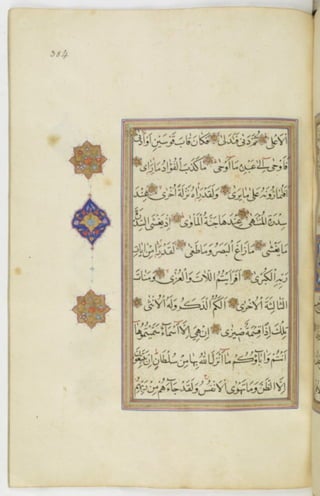 384
الاعلى ثم دنى فتدلى فكان قاب قوسين او ادنى
فاوحى الى عبده ما اوحى ما كذب الفؤاد ما راى
افتمارونه على ما يرى ولقد راه نزلة اخرى عند
سدرة المنتهى عندها جنة الماوى اذ يغشى السدرة
ما يغشى ما زاغ البصر وما طغى لقد راى من ايات
ربه الكبرى افرايتم اللات والعزى ومناة
الثالثة الاخرى الكم الذكر وله الانثى
تلك اذا قسمة ضيزى ان هي الا اسماء سميتموها
انتم واباؤكم ما انزل الله بها من سلطان ان يتبعون
الا الظن وما تهوى الانفس ولقد جاءهم من ربهم